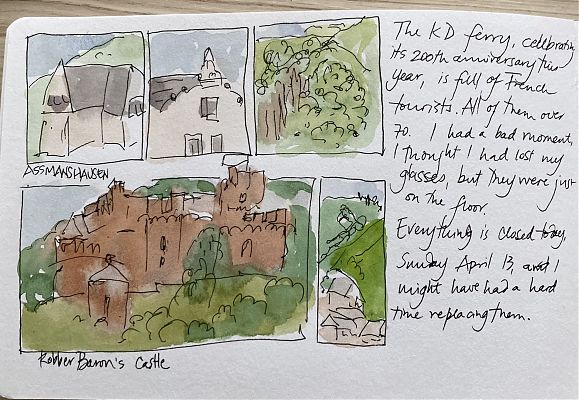 The KD ferry, celebrating
its 200th anniversary this
year, is full of French
tourists. All of them over
70. I had a bad moment,
I thought I had lost my
glasses, but they were just
on the floor.
Everything is closed today,
Sunday April 13, and I
might have had a hard
time replacing them.
ASSMANSHAUSEN
Robber Baron's Castle